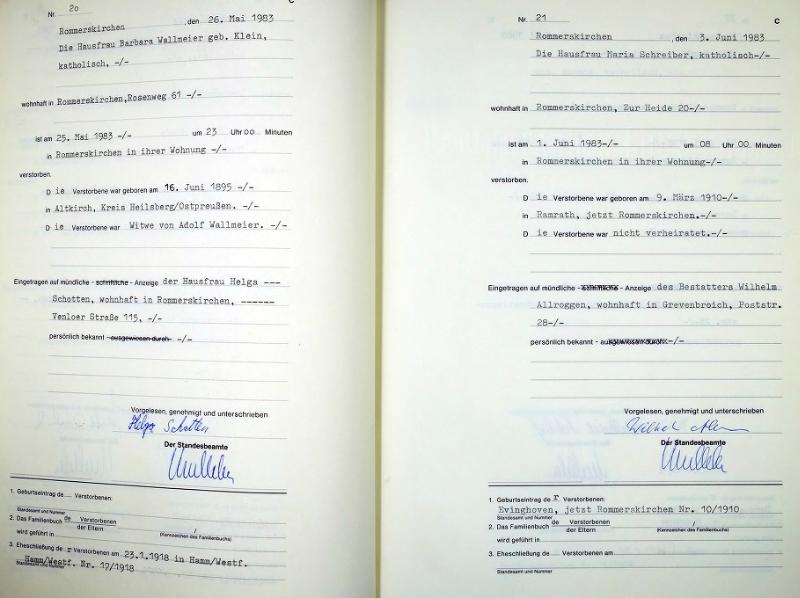 Nr. 20 C
Rommerskirchen , den 26. Mai 1983
Die Hausfrau Barbara Wallmeier geb. Klein,
katholisch, -/-
wohnhaft in Rommerskirchen,Rosenweg 61 -/-
ist am 25. Mai 1983 -/- um 23 Uhr 00 Minuten
in Rommerskirchen in ihrer Wohnung -/-
verstorben.
D ie Verstorbene war geboren am 16. Juni 1895 -/-
in Altkirch, Kreis Heilsberg/Ostpreußen. -/-
D ie Verstorbene war Witwe von Adolf Wallmeier. -/-
Eingetragen auf mündliche - schriftliche - Anzeige der Hausfrau Helga ---
Schotten, wohnhaft in Rommerskirchen, ------
Venloer Straße 115, -/-
persönlich bekannt - ausgewiesen durch -/-
Vorgelesen, genehmigt und unterschrieben
Helga Schotten
Der Standesbeamte
1. Geburtseintrag de Verstorbenen:
Standesamt und Nummer
2. Das Familienbuch de Verstorbenen / der Eltern /
wird geführt in (Kennzeichen des Familienbuchs)
3. Eheschließung de r Verstorbenen am 23.1.1918 in Hamm/Westf.
Hamm/Westf. Nr. 17/1918
Standesamt und Nummer
Nr. 21 C
Rommerskirchen , den 3. Juni 1983
Die Hausfrau Maria Schreiber, katholisch-/-
wohnhaft in Rommerskirchen, Zur Heide 20-/-
ist am 1. Juni 1983-/- um 08 Uhr 00 Minuten
in Rommerskirchen in ihrer Wohnung-/-
verstorben.
D ie Verstorbene war geboren am 9. März 1910-/-
in Ramrath, jetzt Rommerskirchen.-/-
D ie Verstorbene war nicht verheiratet.-/-
Eingetragen auf mündliche - schriftliche - Anzeige des Bestatters Wilhelm
Allroggen, wohnhaft in Grevenbroich, Poststr.
28-/-
persönlich bekannt - ausgewiesen durch -/-
Vorgelesen, genehmigt und unterschrieben
Wilhelm
Der Standesbeamte
1. Geburtseintrag de r Verstorbenen:
Evinghoven, jetzt Rommerskirchen Nr. 10/1910
Standesamt und Nummer
2. Das Familienbuch de Verstorbenen / der Eltern /
wird geführt in (Kennzeichen des Familienbuchs)
3. Eheschließung de Verstorbenen am
Standesamt und Nummer